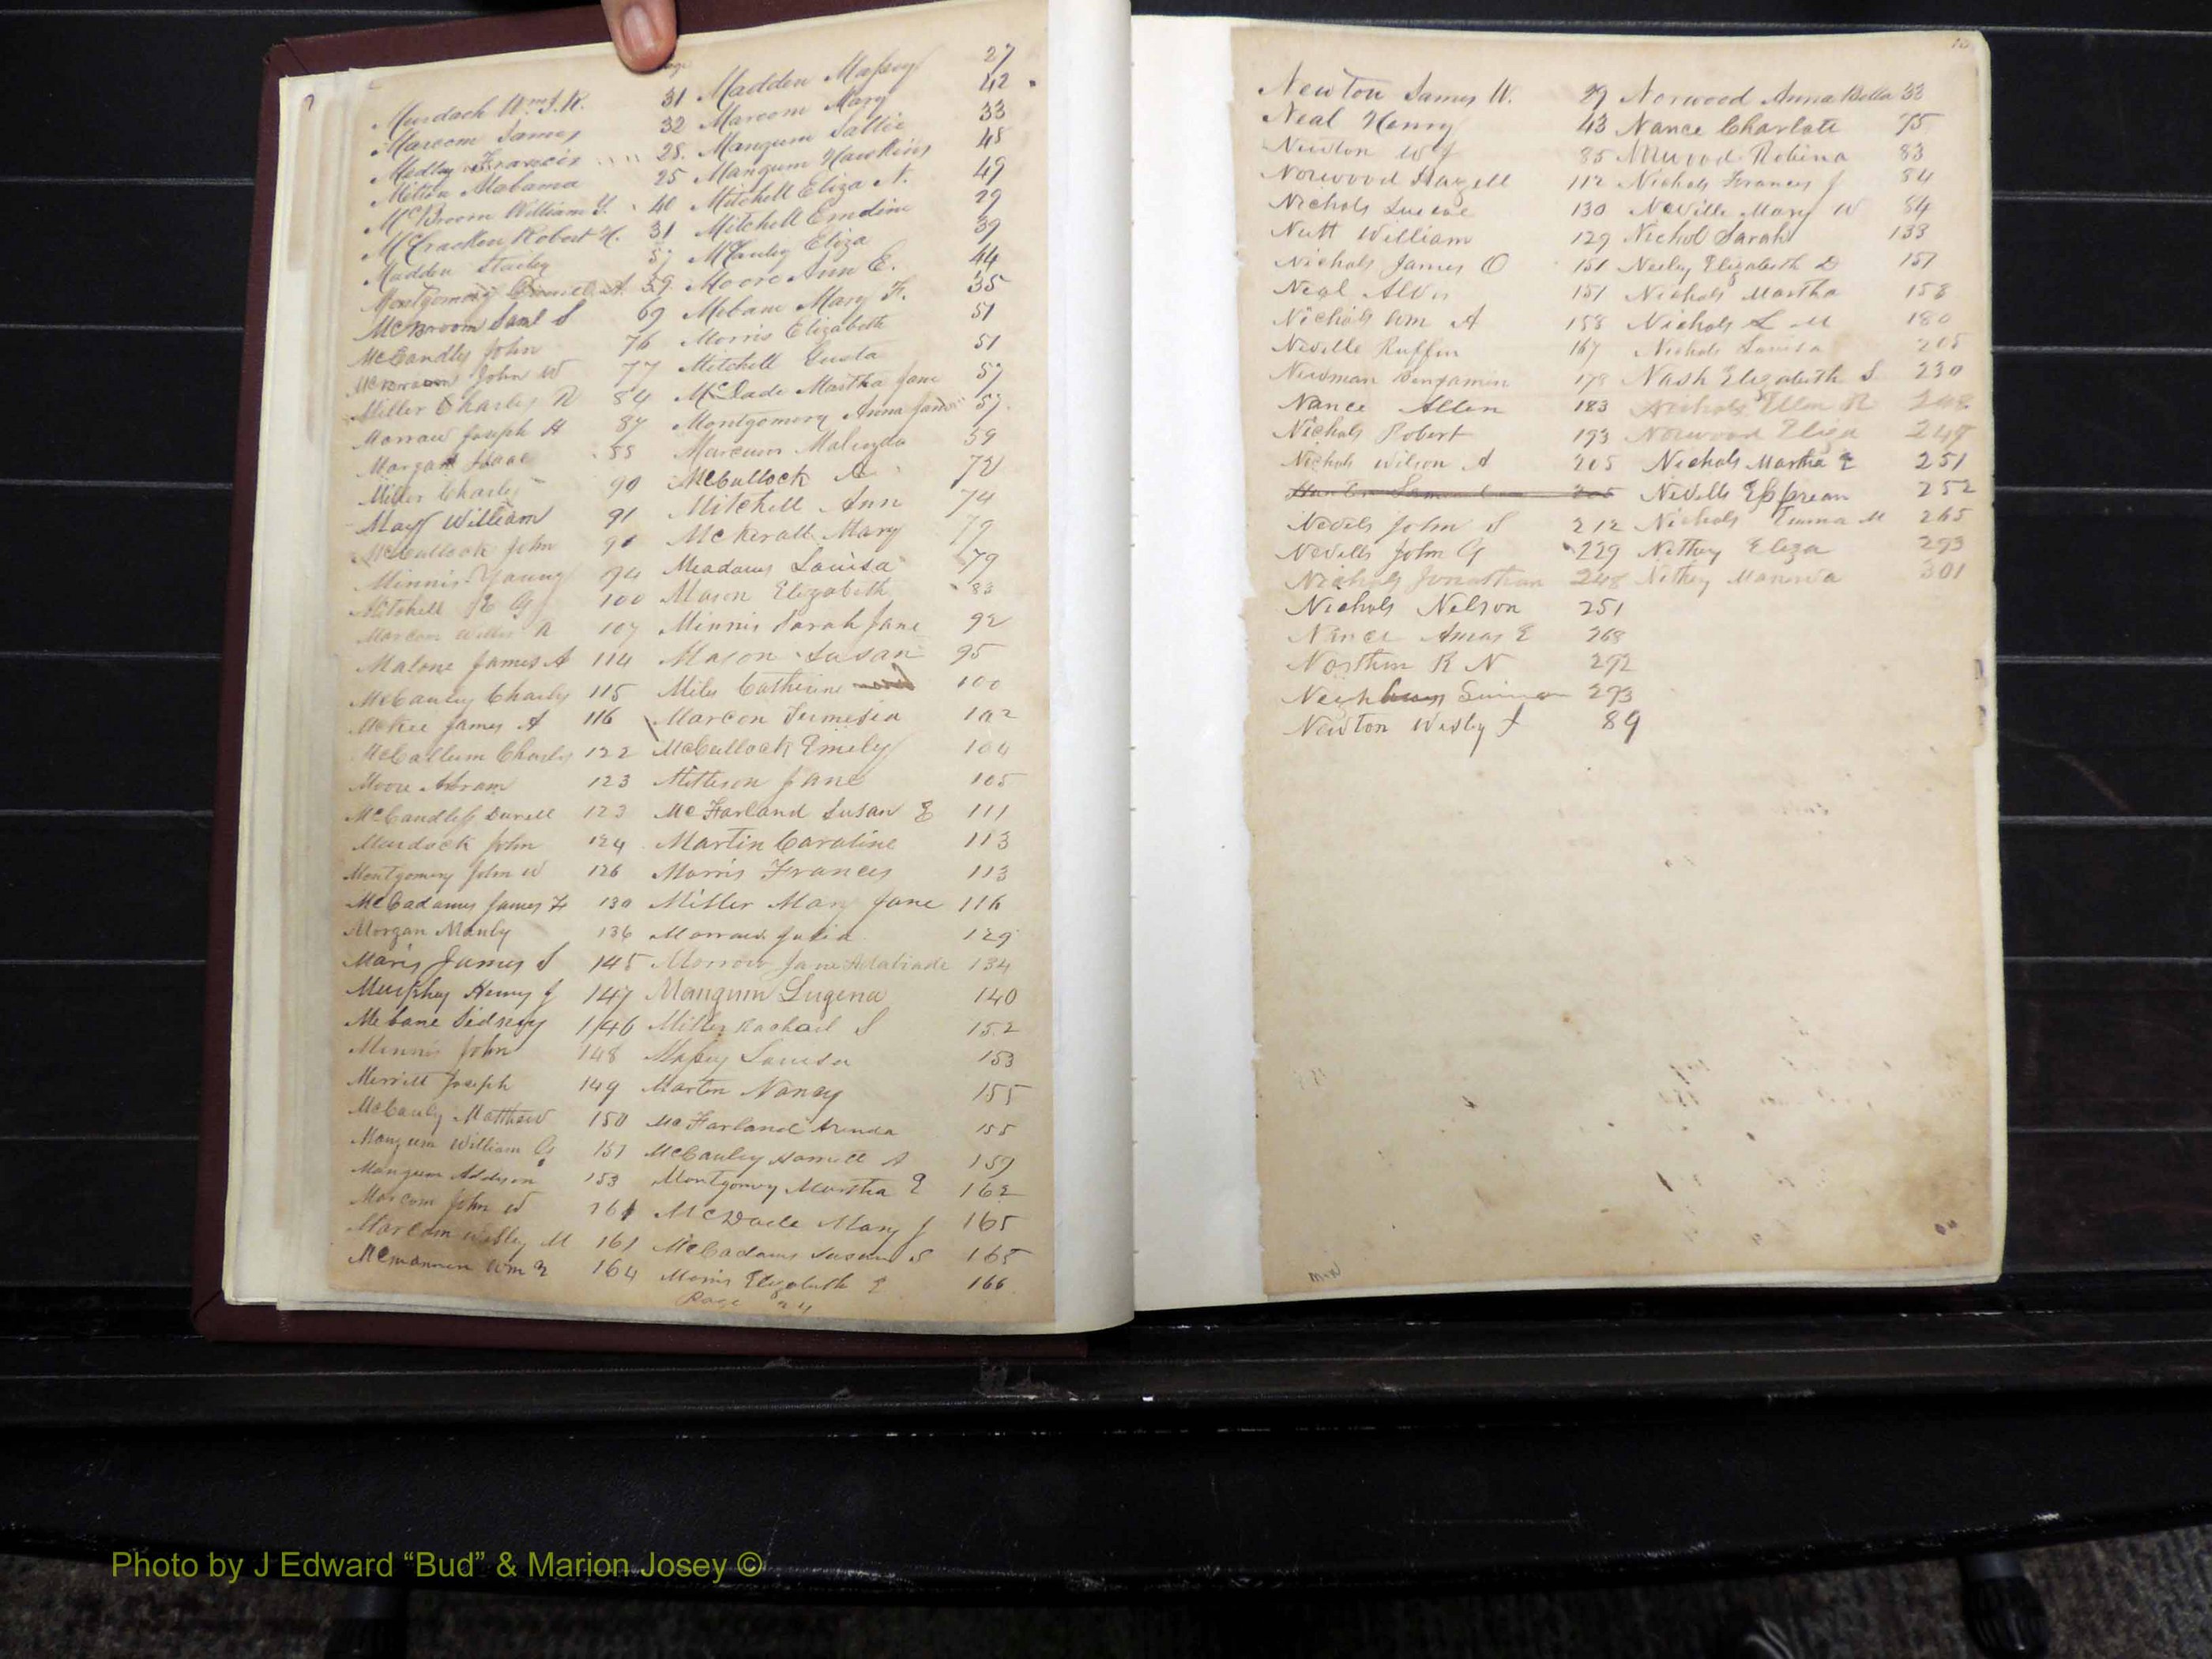 Page
Murdach Wm J. R. 31 Madden Massey 27
Marcom James 32 Marcom Mary 42
Medley Francis 28. Mangum Sallie 33
Melton Alabama 25 Mangum Hawkins 48
McBroom William Y. 40 Mitchell Eliza N. 49
McCracken Robert H. 31 Mitchell Emeline 29
Madden Stanley 57 McCauley Eliza 39
Montgomery A. 59 Moore Ann E. 44
McBroom Saml S 69 Mebane Mary F. 35
McCandles John 76 Morris Elizabeth 51
McBroom John W 77 Mitchell 51
Miller Charles D 84 McDade Martha Jane 57
Morrow Joseph H 87 Montgomery Anna Jane 57
Morgan Isaac 88 Marcum Malinda 59
Miller Charles 90 McCullock 72
May William 91 Mitchell Ann 74
McCullock John 91 McKerall Mary 79
Minnis Young 94 Meadows Louisa 79
Mitchell R G 100 Mason Elizabeth 83
Marcom Willis A 107 Minnis Sarah Jane 92
Malone James A 114 Mason Susan 95
McCauley Charles 115 Miles Catherine 100
McKee James A 116 Marcon 102
McCallum Charles 122 McCullock Emily 104
Moore Abram 123 Mitteson Jane 105
McCandless Durell 123 McFarland Susan E 111
Murdock John 124 Martin Caroline 113
Montgomery John W 126 Morris Frances 113
McCadams James F 130 Miller Mary Jane 116
Morgan Manly 136 Morrow Julia 129
Maris James S 145 Morrow Jane 134
Murphey Henry J 147 Mangum Lugena 140
Mebane Sidney 146 Miller Rachael S 152
Minnis John 148 Massey Louisa 153
Merritt Joseph 149 Martin Nancy 155
McCauly Matthew 150 McFarland 155
Mangum William G 151 McCauley A 159
Mangum Addison 153 Montgomery Martha E 162
Marcom John W 161 McDade Mary J 165
Marcom Wesley M 161 McCadams Susan S 165
Mcmannen Wm 164 Morris Elizabeth 166
Page
Newton James W. 29 Norwood Anna Bella 33
Neal Henry 43 Nance Charlote 75
Newton W J 85 Norwood Robina 83
Norwood Hazell 112 Nichols Frances J 84
Nichols 130 Neville Mary W 84
Nutt William 129 Nichol Sarah 133
Nichols James O 151 Neeley Elizabeth D 157
Neal 151 Nichols Martha 158
Nichols Wm A 158 Nichols L M 180
Neville Ruffin 167 Nichols Louisa 205
Newman Benjamin 178 Nash Elizabeth S. 230
Nance Allen 183 Nichols Ellen R 248
Nichols Robert 193 Norwood Eliza 249
Nichols Wilson A 205 Nichols Martha E 251
205 Nevills 252
Nevels John S 212 Nichols Emma M 265
Nevills John G 229 Nethey Eliza 293
Nichols Jonathan 248 Nethey Manerva 301
Nichols Nelson 251
Nance Amos E 268
Northen R N 272
293
Newton Wesley J 89
Photo by J Edward “Bud” & Marion Josey ©